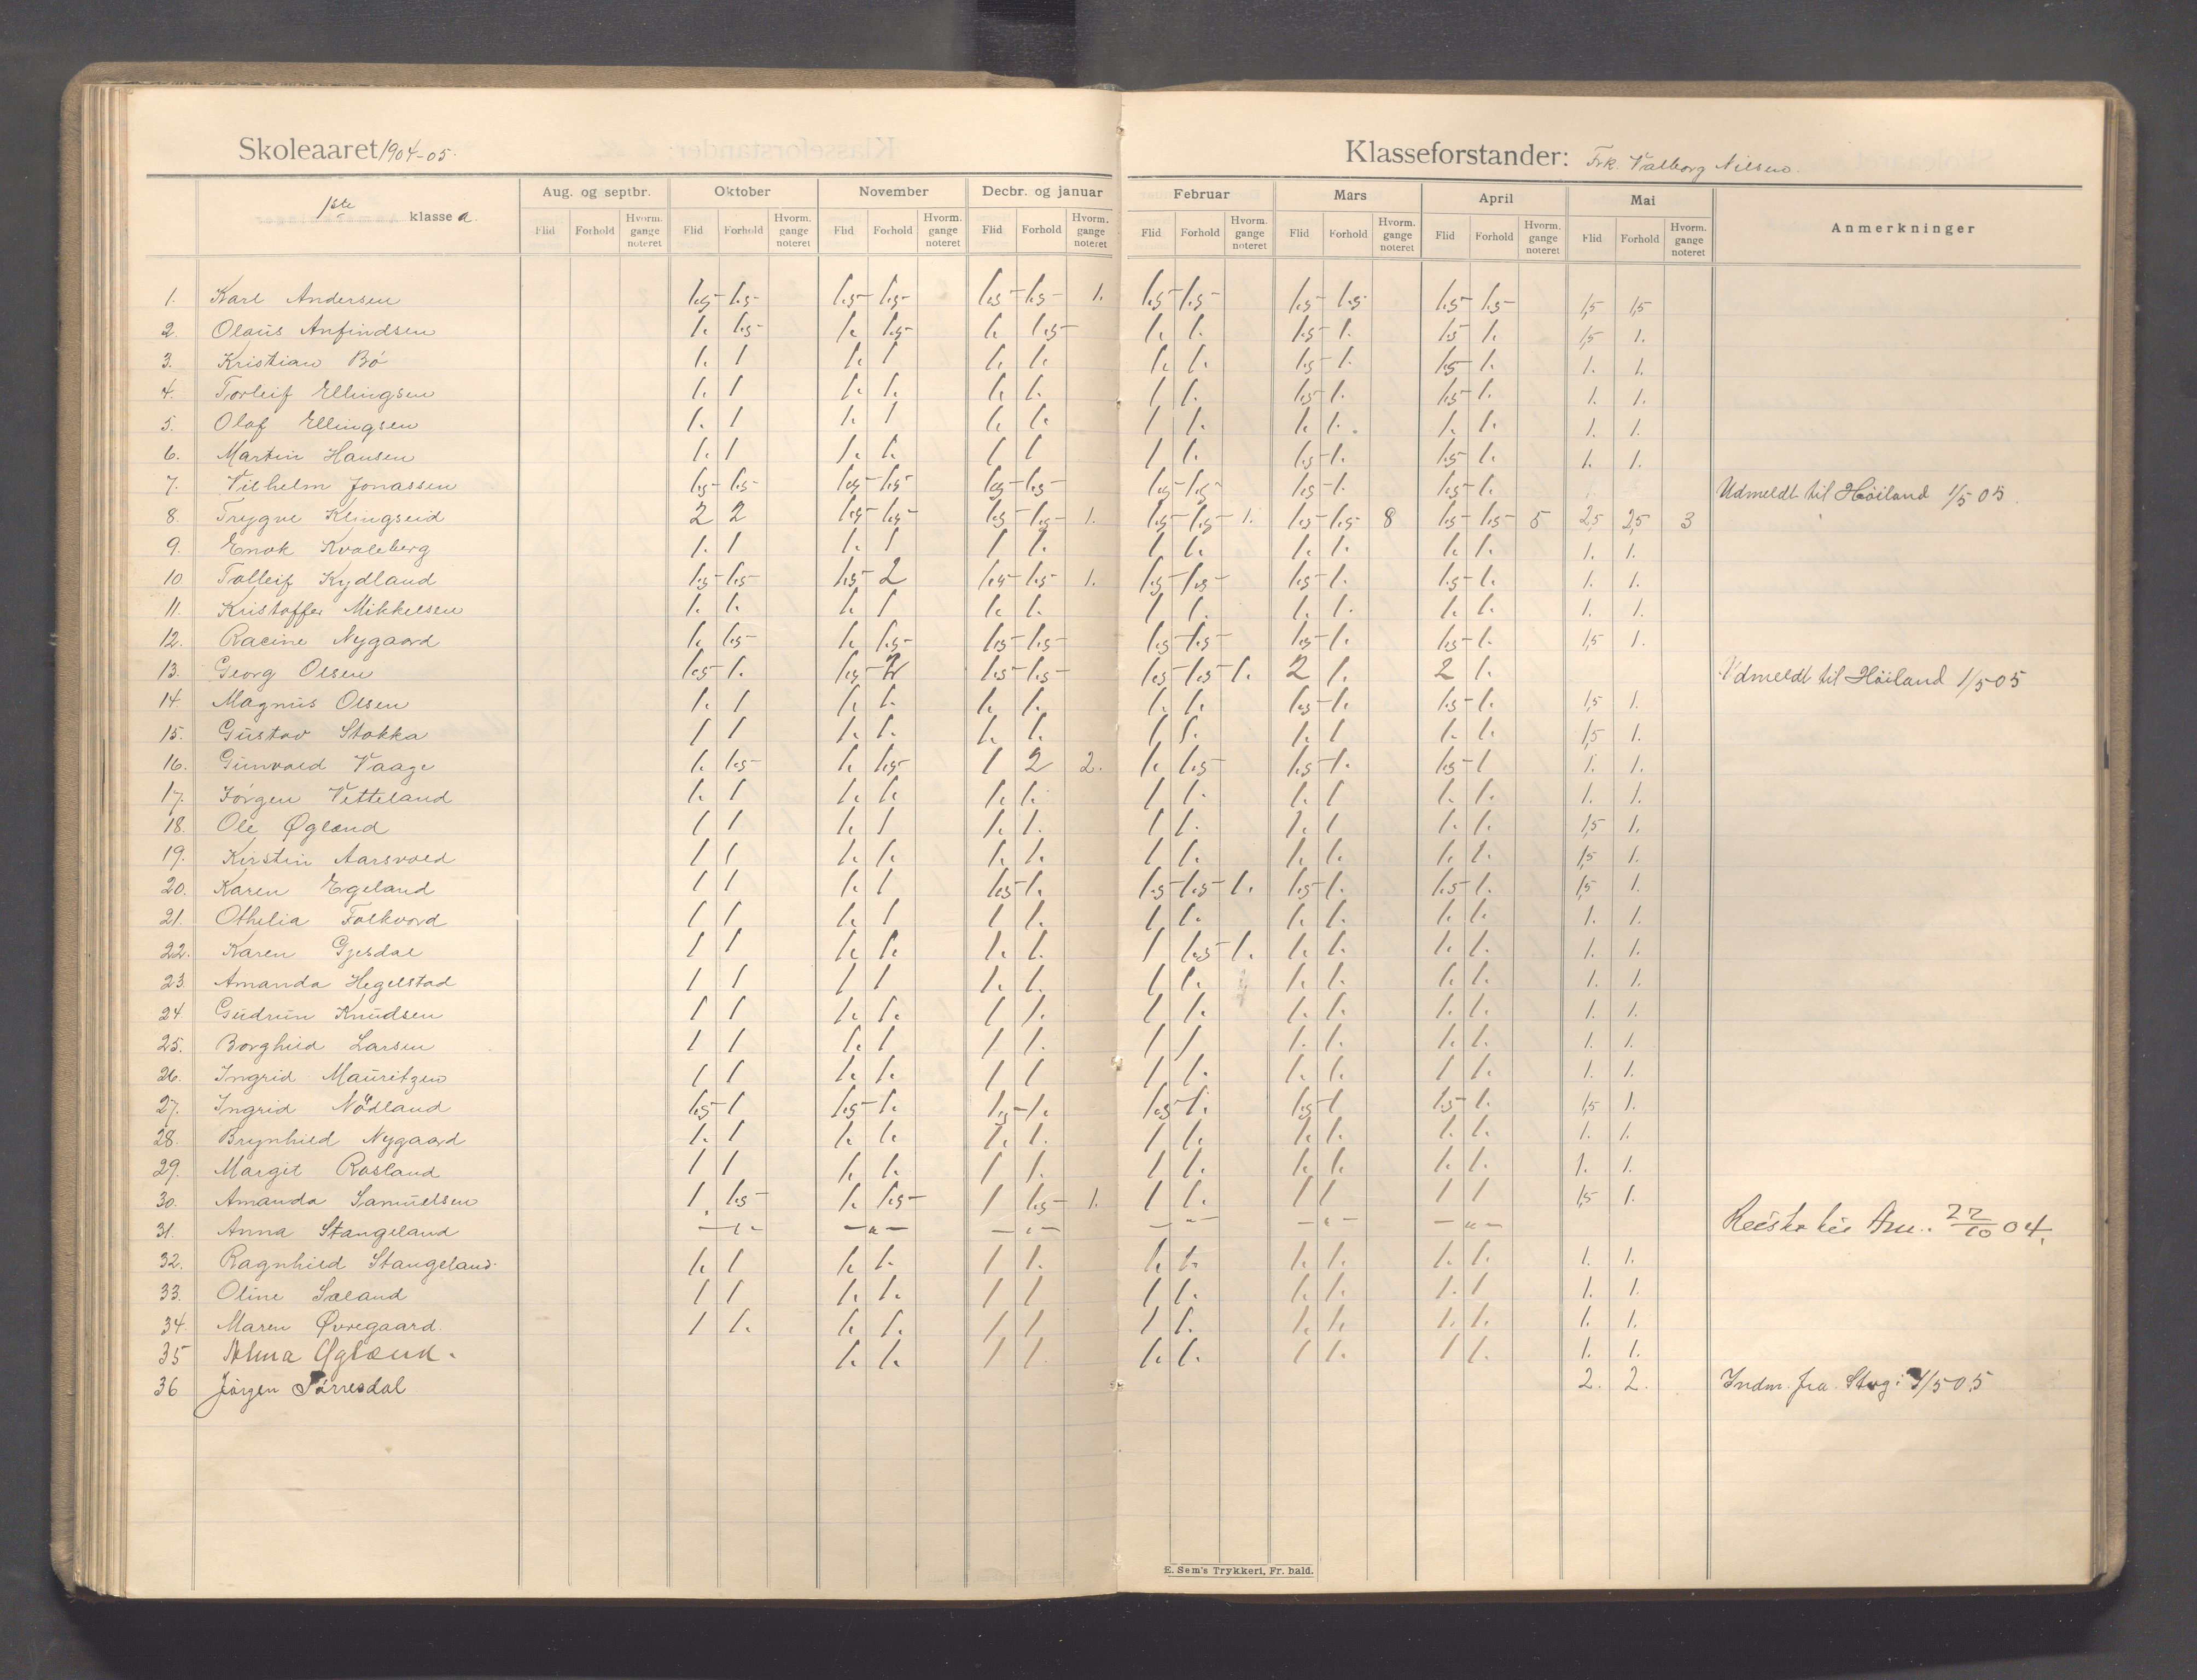 Skoleaaret 1904-05.
Klasseforstander: Frk. Valborg Nilsen.
1ste klasse a.
Aug. og septbr. Oktober November Decbr. og januar Februar Mars April Mai Anmerkninger
Flid Forhold Hvorm. gange noteret Flid Forhold Hvorm. gange noteret Flid Forhold Hvorm. gange noteret Flid Forhold Hvorm. gange noteret Flid Forhold Hvorm. gange noteret Flid Forhold Hvorm. gange noteret Flid Forhold Hvorm. gange noteret Flid Forhold Hvorm. gange noteret
1. Karl Andersen 1.5 1.5 1.5 1.5 1.5 1.5 1. 1.5 1.5 1.5 1.5 1.5 1.5 1,5 1,5
2. Olaus Anfindsen 1. 1.5 1. 1.5 1. 1.5 1. 1. 1.5 1. 1.5 1. 1,5 1.
3. Kristian Bö 1. 1 1. 1 1. 1. 1. 1. 1.5 1. 1.5 1. 1. 1.
4. Torleif Ellingsen 1. 1 1. 1. 1. 1. 1 1. 1.5 1. 1.5 1. 1. 1.
5. Olaf Ellingsen 1. 1 1. 1 1. 1. 1 1. 1. 1. 1. 1. 1. 1.
6. Martin Hansen 1. 1 1. 1. 1 1 1 1. 1.5 1. 1.5 1. 1. 1.
7. Vilhelm Jonassen 1.5 1.5 1.5 1.5 1.5 1.5 1.5 1.5 1.5 1. 1.5 1. Udmeldt til Höiland 1/5 05.
8. Trygve Klingseid 2 2 1.5 1.5 1.5 1.5 1. 1.5 1.5 1. 1.5 1.5 8 1.5 1.5 5 2,5 2,5 3
9. Enok Kvaleberg 1. 1 1. 1 1 1. 1 1. 1. 1. 1. 1. 1. 1.
10 Tolleif Kydland 1.5 1.5 1.5 2 1.5 1.5 1. 1.5 1.5 1.5 1. 1.5 1. 1. 1.
11. Kristoffer Mikkelsen 1. 1. 1. 1 1. 1. 1 1. 1. 1. 1. 1. 1. 1.
12. Racine Nygaard 1. 1.5 1. 1.5 1.5 1.5 1.5 1.5 1.5 1. 1.5 1. 1,5 1.
13. Georg Olsen 1.5 1. 1.5 2 1.5 1.5 1.5 1.5 1. 2 1. 2 1. Udmeldt til Höiland 1/5 05
14 Magnus Olsen 1. 1 1. 1. 1. 1. 1. 1. 1.5 1. 1.5 1. 1,5 1.
15. Gustav Stokka 1 1 1. 1. 1. 1. 1 1. 1. 1 1. 1. 1,5 1.
16. Gunvald Vaage 1. 1.5 1. 1.5 1 2 2. 1. 1.5 1.5 1. 1.5 1 1. 1.
17. Jörgen Vetteland 1. 1 1. 1. 1. 1. 1 1. 1. 1 1. 1. 1. 1.
18. Ole Øgland 1 1 1. 1 1. 1. 1 1. 1. 1 1. 1. 1,5 1.
19. Kirstin Aarsvold 1 1 1. 1. 1. 1. 1 1. 1. 1. 1. 1. 1,5 1.
20. Karen Egeland 1 1 1. 1 1.5 1. 1.5 1.5 1. 1.5 1. 1.5 1. 1,5 1.
21. Othilia Folkvord 1 1 1. 1 1 1. 1 1. 1. 1. 1. 1. 1. 1.
22. Karen Gjesdal 1 1 1. 1. 1. 1. 1 1.5 1. 1. 1. 1. 1. 1. 1.
23. Amanda Hegelstad 1 1 1 1 1. 1. 1 1. 1. 1. 1. 1. 1. 1.
24. Gudrun Knudsen 1 1 1. 1. 1 1. 1 1. 1. 1. 1. 1. 1. 1.
25. Borghild Larsen 1 1 1. 1 1 1. 1 1 1. 1. 1. 1. 1. 1.
26. Ingrid Mauritzen 1 1 1. 1. 1 1 1 1. 1. 1. 1 1. 1. 1.
27. Ingrid Nödland 1.5 1 1.5 1. 1.5 1. 1.5 1. 1.5 1 1.5 1. 1,5 1.
28. Brynhild Nygaard 1. 1 1. 1. 1. 1. 1 1. 1. 1. 1. 1. 1. 1.
29. Margit Rosland 1 1 1. 1. 1 1. 1 1. 1. 1. 1. 1. 1. 1.
30. Amanda Samuelsen 1. 1.5 1. 1.5 1 1.5 1. 1 1. 1 1 1 1 1,5 1.
31. Anna Stangeland — " — — " — — " — — " — — " — — " — 22/10 04.
32. Ragnhild Stangeland 1. 1 1. 1. 1 1. 1. 1. 1. 1. 1. 1. 1. 1.
33. Oline Sæland 1 1 1. 1. 1 1 1 1. 1. 1. 1. 1 1. 1.
34. Maren Øvregaard. 1 1. 1. 1. 1 1 1 1. 1. 1. 1. 1. 1. 1.
35 Alma Øglænd. 1. 1. 1 1 1. 1. 1 1. 1 1. 1. 1.
36 Jörgen Törresdal 2. 2. Indm. fra Stvg: 1/5 05
E. Sem's Trykkeri, Fr. hald.